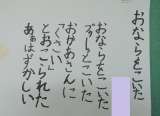 おならをこいた
おならをこいた
とこいた
おかあさんに
「くさい」
とおこられた
ああはずかしい